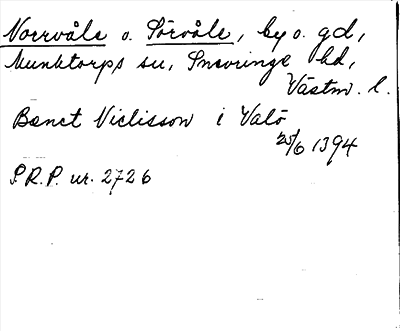 Norrvåle o. Sörvåle, by o. gd,
Munktorps sn, Snevringe hd,
Västm. l.
Benct Niclisson i Valö
25/6 1394
S.R.P. nr. 2726